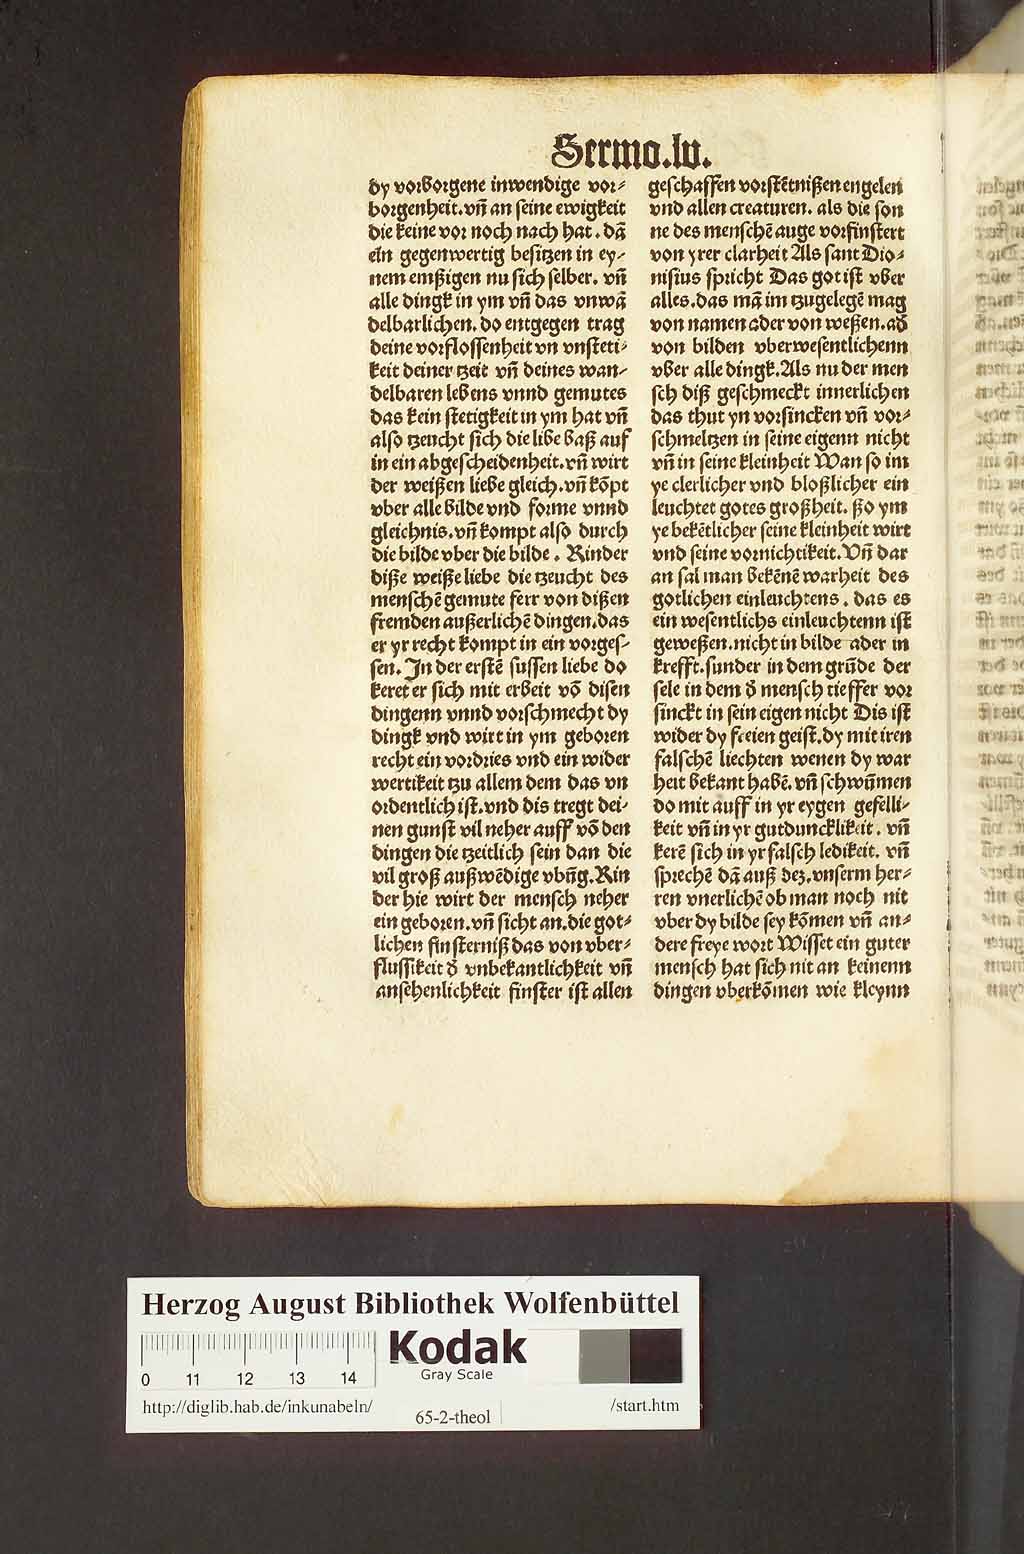 Sermo.lv.
dy vorborgene inwendige vor⸗
borgenheit.vn̄ an seine ewigkeit
die keine vor noch nach hat. dā
ein gegenwertig besitzen in ey⸗
nem emßigen nu sich selber. vn̄
alle dingk in ym vn̄ das vnwā
delbarlichen. do entgegen trag
deine vorflossenheit vn vnsteti⸗
keit deiner tzeit vn̄ deines wan⸗
delbaren lebens vnnd gemutes
das kein stetigkeit in ym hat vn̄
also tzeucht sich die libe baß auf
in ein abgescheidenheit.vn̄ wirt
der weißen liebe gleich.vn̄ kōpt
vber alle bilde vnd forme vnnd
gleichnis.vn̄ kompt also durch
die bilde vber die bilde. Kinder
diße weiße liebe die tzeucht des
menschē gemute ferr von dißen
fremden außerlichē dingen.das
er yr recht kompt in ein vorges⸗
sen. In der erstē sussen liebe do
keret er sich mit erbeit vō disen
dingenn vnnd vorschmecht dy
dingk vnd wirt in ym geboren
recht ein vordries vnd ein wider
wertikeit tzu allem dem das vn
ordentlich ist.vnd dis tregt dei⸗
nen gunst vil neher auff vō den
dingen die tzeitlich sein dan die
vil groß außwēdige vbn̄g.Kin
der hie wirt der mensch neher
ein geboren.vn̄ sicht an.die got⸗
lichen finsterniß das von vber⸗
flussikeit d̄ vnbekantlichkeit vn̄
ansehenlichkeit finster ist allen
geschaffen vorstētnißen engelen
vnd allen creaturen. als die son
ne des menschē auge vorfinstert
von yrer clarheit Als sant Dio⸗
nisius spricht Das got ist vber
alles.das mā im tzugelegē mag
von namen ader von weßen.ad̄
von bilden vberwesentlichenn
vber alle dingk.Als nu der men
sch diß geschmeckt innerlichen
das thut yn vorsincken vn̄ vor⸗
schmeltzen in seine eigenn nicht
vn̄ in seine kleinheit Wan so im
ye clerlicher vnd bloßlicher ein
leuchtet gotes großheit. ßo ym
ye bekētlicher seine kleinheit wirt
vnd seine vornichtikeit.Vn̄ dar
an sal man bekēnē warheit des
gotlichen einleuchtens. das es
ein wesentlichs einleuchtenn ist
geweßen.nicht in bilde ader in
krefft.sunder in dem grūde der
sele in dem d̄ mensch tieffer vor
sinckt in sein eigen nicht Dis ist
wider dy freien geist.dy mit iren
falschē liechten wenen dy war
heit bekant habē. vn̄ schwūmen
do mit auff in yr eygen gefelli⸗
keit vn̄ in yr gutduncklikeit. vn̄
kerē sich in yr falsch ledikeit. vn̄
sprechē dā auß dez.vnserm her⸗
ren vnerlichē ob man noch nit
vber dy bilde sey kōmen vn̄ an⸗
dere freye wort Wisset ein guter
mensch hat sich nit an keinenn
dingen vberkōmen wie kleynn
Herzog August Bibliothek Wolfenbüttel
0 11 12 13 14
Kodak
Gray Scale
http://diglib.hab.de/inkunabeln/ 65-2-theol /start.htm